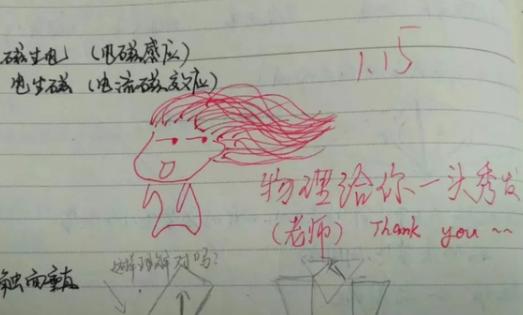 磁生电（电磁感应）
1.15
电生磁（电流磁效应）
物理给你一头秀发
（老师） Thank you ~~
这样理解对吗？
触面垂直